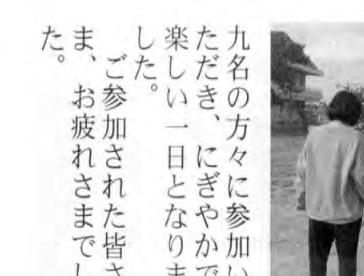 九名の方々に参加い
ただき、にぎやかで
楽しい一日となりま
した。
　ご参加された皆さ
ま、お疲れさまでし
た。